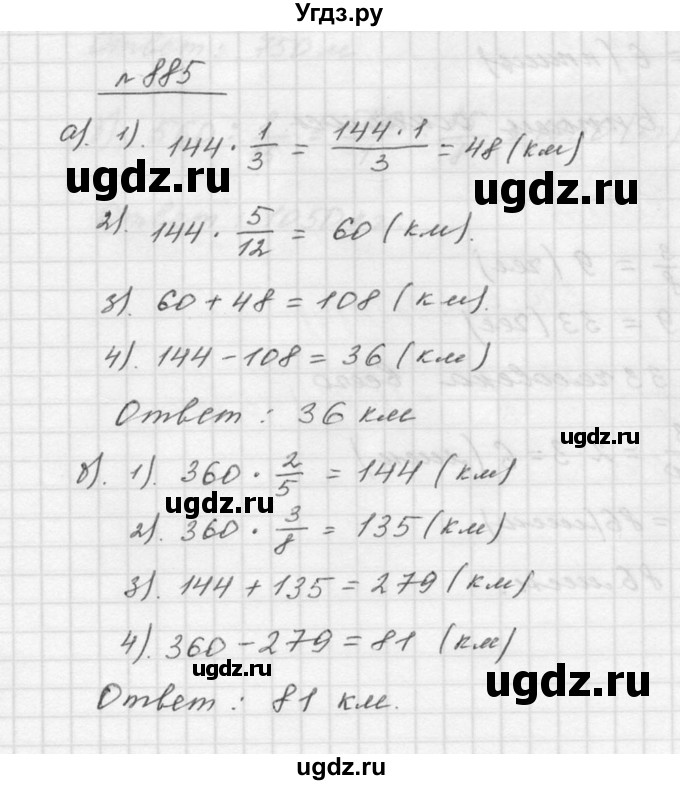 Угдз.ру
№ 885
а). 1). 144 · 1/3 = 144 · 1/3 = 48 (км)
ugdz.ru ugdz.ru
2). 144 · 5/12 = 60 (км).
3). 60 + 48 = 108 (км).
4). 144 - 108 = 36 (км)
Ответ : 36 км
ugdz.ru
б). 1). 360 · 2/5 = 144 (км)
ugdz.ru
2). 360 · 3/8 = 135 (км)
3). 144 + 135 = 279 (км)
4). 360 - 279 = 81 (км)
ugdz.ru ugdz.ru
Ответ : 81 км.
ugdz.ru